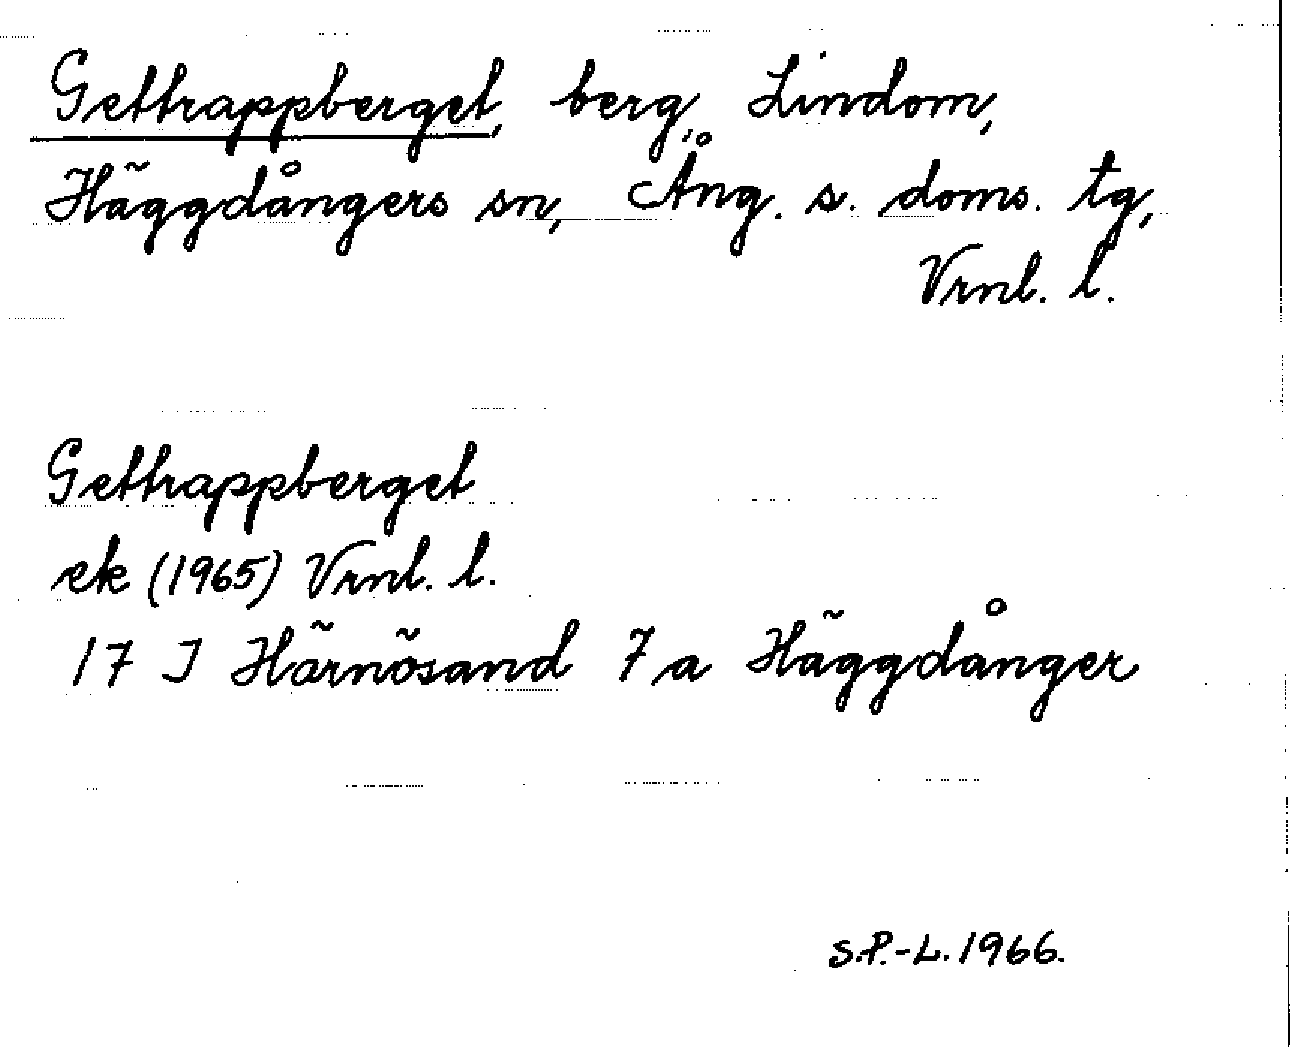 Getkrappberget, berg, Lindom,
Häggdångers sn, Ång. s. doms. tg,
Vrnl. l.
Getkrappberget
ek (1965) Vrnl. l.
17 I Härnösand 7 a Häggdånger
S.P.-L. 1966.